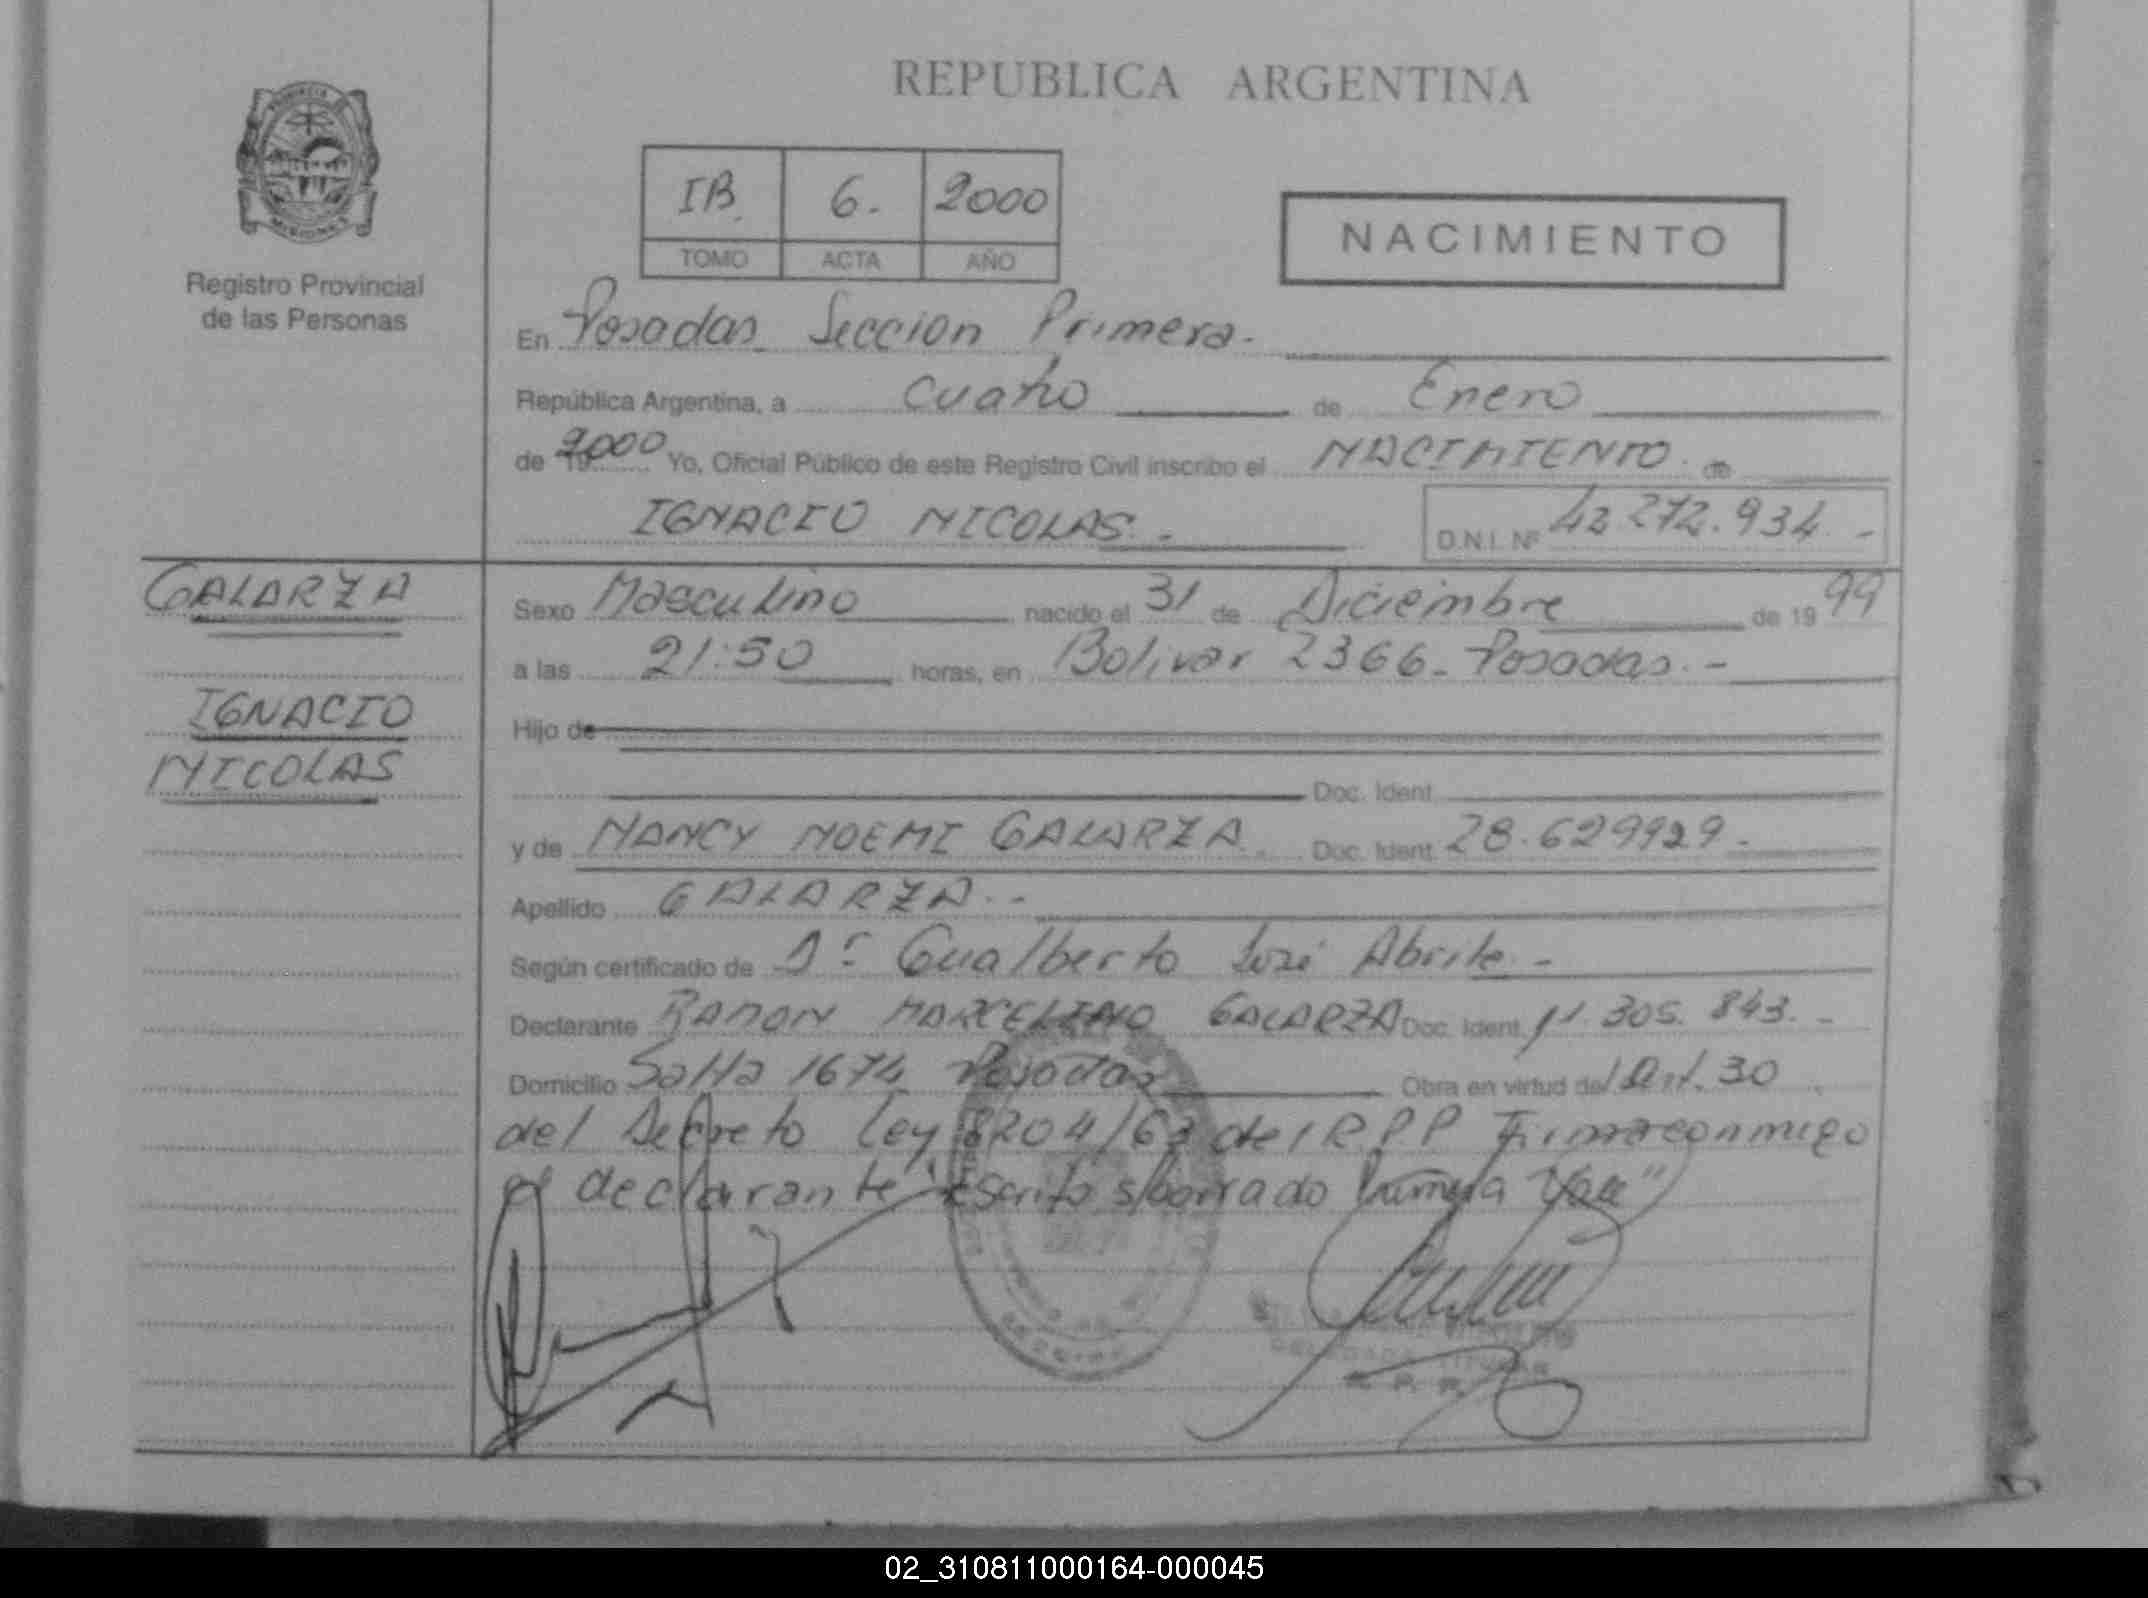 REPUBLICA ARGENTINA
PROVINCIA DE
MISIONES
Registro Provincial
de las Personas
IB. 6. 2000
TOMO ACTA AÑO
NACIMIENTO
En Posadas Seccion Primera.
República Argentina, a cuatro de Enero
de 2000 Yo, Oficial Público de este Registro Civil inscribo el NACIMIENTO. de
IGNACIO NICOLAS.- D.N.I. Nº 42 272.934.-
GALARZA
IGNACIO
NICOLAS
Sexo Masculino nacido el 31 de Diciembre de 19 99
a las 21:50 horas, en Bolivar 2366- Posadas.-
Hijo de
Doc. Ident.
y de NANCY NOEMI GALARZA. Doc. Ident. 28.629929.-
Apellido GALARZA.-
Según certificado de Dr Gualberto José Abrile.-
Declarante RAMON MARCELINO GALARZA Doc. Ident. 305.843.-
Domicilio Salta 1674 Posadas Obra en virtud del Art. 30
del Decreto Ley 8204/63 del R.P.P Firma conmigo
el declarante "Escrito s/borrado
DELEGADA TITULAR
R. P. P.
02_310811000164-000045